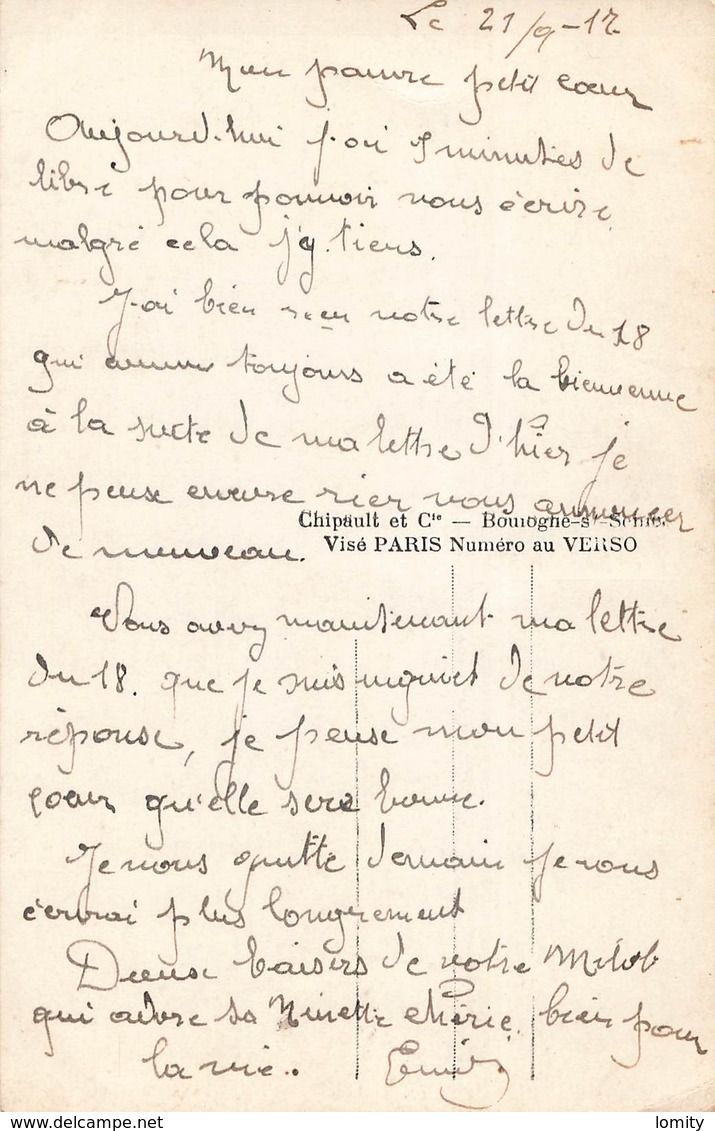 Le 21/9-17
Mon pauvre petit coeur
Aujourd-hui j-ai 5 minuties de
libre pour pouvoir vous écrire
malgré cela j'y tiens.
J-ai bien recu votre lettre du 18
qui comme toujours a été la bienvenue
à la suite de ma lettre d'hier je
ne peuse encore rien vous annoncer
Chipault et Cie — Boulogne-sr-Seine.
de nouveau.
Visé PARIS Numéro au VERSO
Vous avez maintenant ma lettre
du 18. que je suis inquiet de votre
réponse, je pense mon petit
coeur qu'elle sera bonne.
Je vous quitte demain je vous
écrirai plus longuement
Deuse baisers de votre Milot
qui adore sa Ninette chérie bien pour
la vie..
lomity